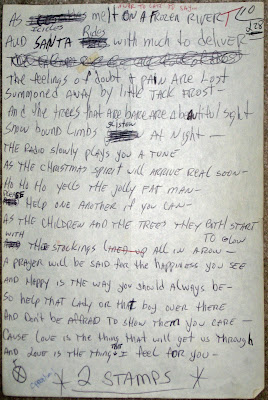 AS icicles melt ON A FROZEN RIVER
110
228
AND SANTA Rides with much to deliver
The feelings of doubt & PAIN ARE LOST
Summoned AWAY by little JACK FROST-
And the TREES that ARE BARE ARE A beautiful sight
Snow bound limbs glisten AT Night -
THE RADIO slowly plays you A TUNE
AS the CHRISTMAS spirit will ARRIVE REAL SOON-
Ho Ho Ho yells the jolly FAT MAN-
PLEASE Help ONE ANOTHER if you CAN-
AS the CHILDREN AND the TREES THEY both START
TO Glow
WITH THE STOCKINGS all IN A ROW-
A PRAYER will be SAID FOR the HAPPINESS you SEE
AND HAPPY is the WAY you should Always be-
So help that lady OR that boy over there
AND DON'T be AFRAID TO show them you CARE-
CAUSE LOVE is the thing that will get us through
AND LOVE is the thing THAT I feel FOR you-
* 2 STAMPS *